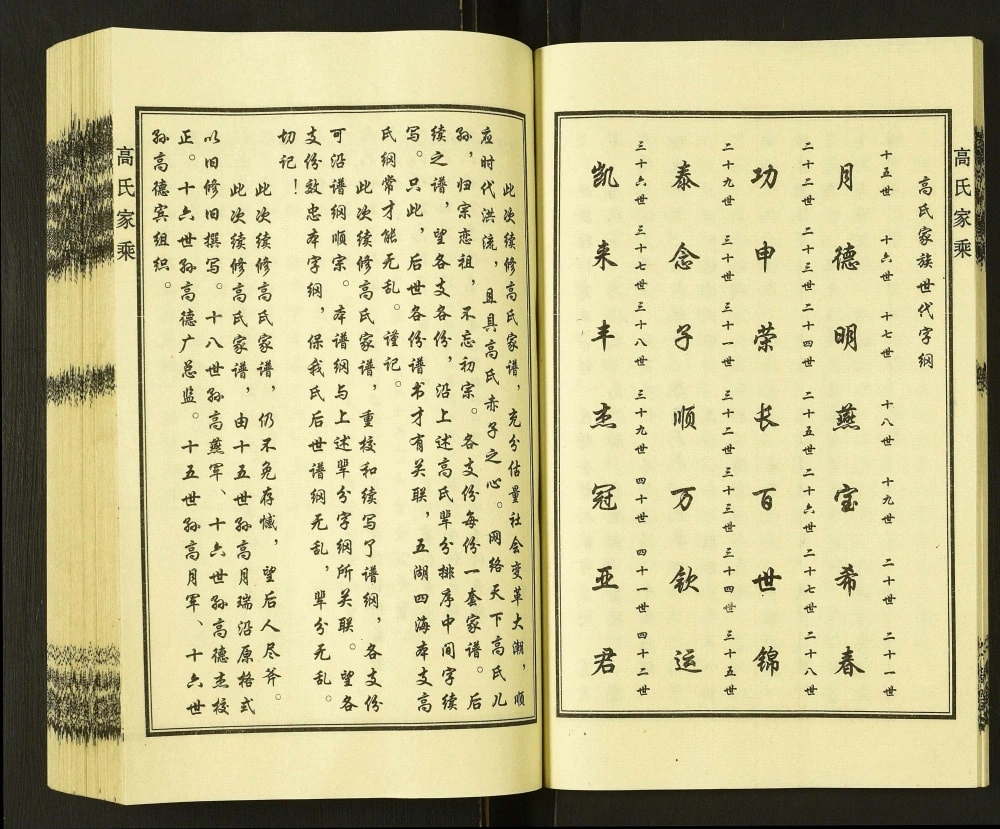 高氏家乘
高氏家族世代字纲
十五世 十六世 十七世 十八世 十九世 二十世 二十一世
月德明燕宝希春
二十二世 二十三世 二十四世 二十五世 二十六世 二十七世 二十八世
功申荣长百世锦
二十九世 三十世 三十一世 三十二世 三十三世 三十四世 三十五世
泰念子顺万钦运
三十六世 三十七世 三十八世 三十九世 四十世 四十一世 四十二世
凯来丰杰冠亚君
此次续修高氏家谱，充分估量社会变革大潮，顺
应时代洪流，且具高氏赤子之心。网络天下高氏儿
孙，归宗恋祖，不忘初宗。各支份每份一套家谱。后
续之谱，望各支各份，沿上述高氏辈分排序中间字续
写。只此，后世各份谱书才有关联，五湖四海本支高
氏纲常才能无乱。谨记。
此次续修高氏家谱，重校和续写了谱纲，各支份
可沿谱纲顺宗。本谱纲与上述辈分字纲所关联。望各
支份效忠本字纲，保我氏后世谱纲无乱，辈分无乱。
切记！
此次续修高氏家谱，仍不免存憾，望后人尽斧。
此次续修高氏家谱，由十五世孙高月瑞沿原格式
以旧修旧撰写。十八世孙高燕军、十六世孙高德杰校
正。十六世孙高德广总监。十五世孙高月军、十六世
孙高德宾组织。
高氏家乘